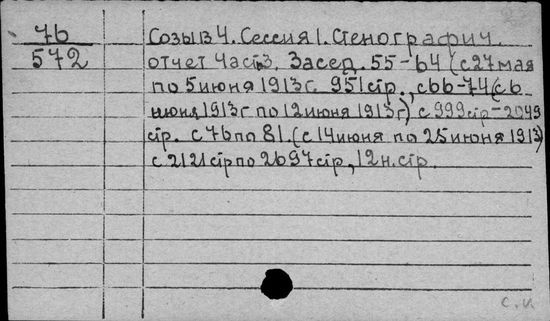 7б
572
Созыв 4. Сессия 1. Стенографич.
отчет Часть 3, Засед. 55-64 (с 27 мая
по 5 июня 1913 г. 951 стр., с 66-74 (с 6
июня 1913 г по 12 июня 1913 г) с 999 стр-2049
стр. с 76 по 81. (с 14 июня по 25 июня 1913)
с 2121 стр по 2697 стр, 12 н. стр.
с. к